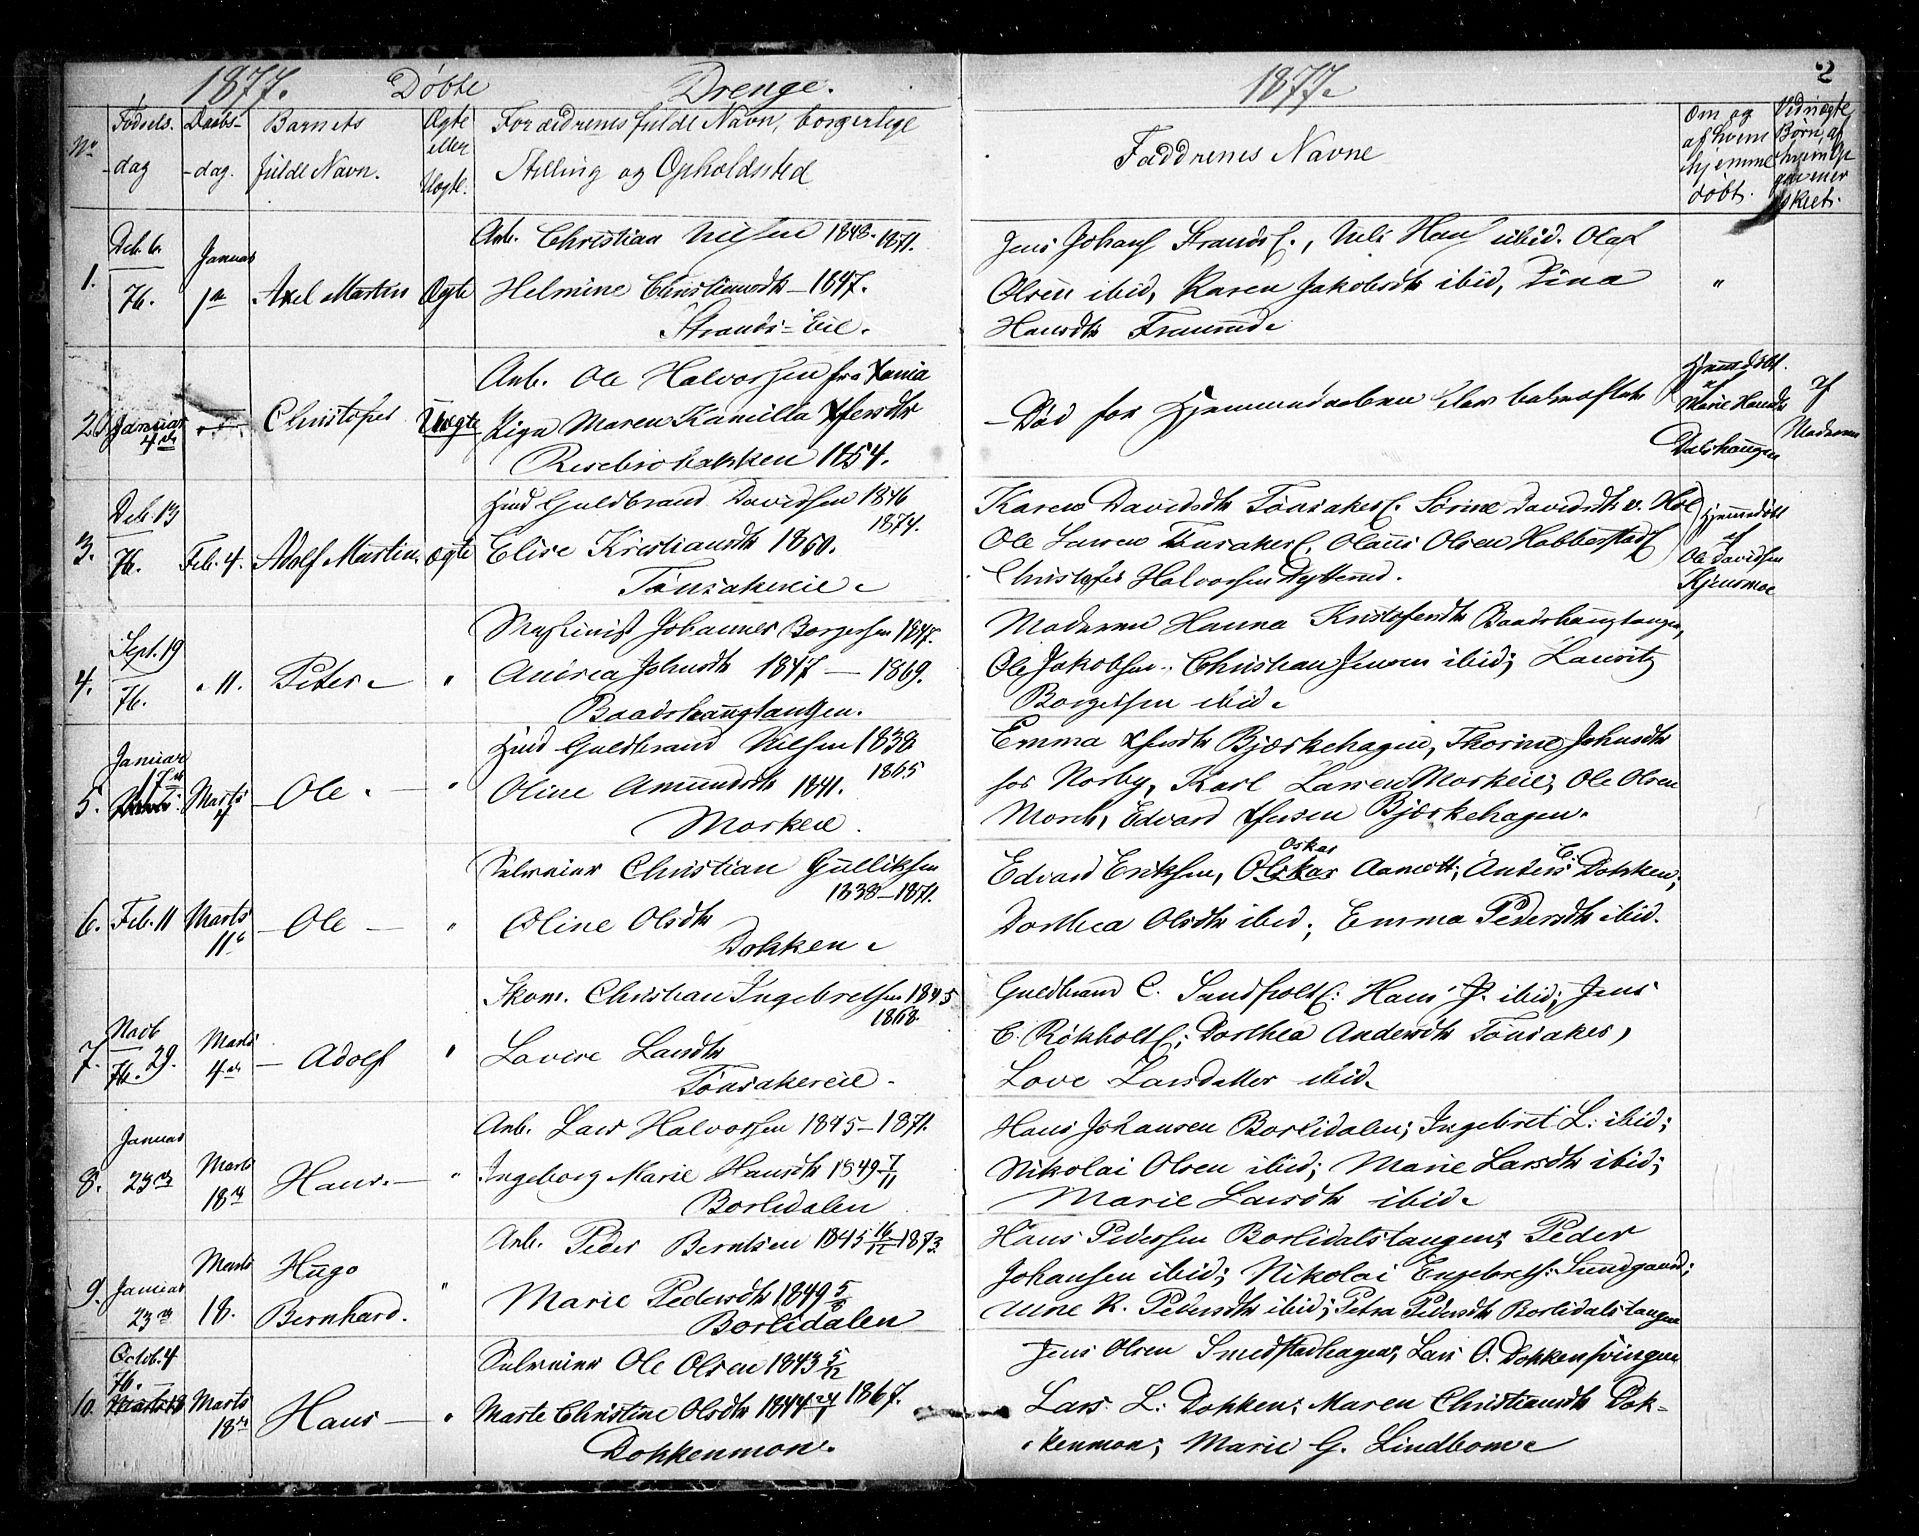 1877. Døbte Drenge. 1877. 2
No Fødsels-dag Daabs-dag. Barnets fulde Navn. Ægte eller Uægte. Forældrenes fulde Navn, borgerlige Stilling og Opholdssted
Faddrenes Navne
Om og af hvem hjemmedøbt.
Ved uægte Børn, af hvem Opgaven er skeet.
1. Dcb. 6. 76. Januar 1ste Axel Martin Ægte
Arb. Christian Nilsen 1848. 1871.
Helmine Christiansdtr – 1847.
Strands-Eie.
Jens Johans. Strands E., Nils Hans. ibid. Olaf
Olsen ibid, Karen Jakobsdtr ibid, Lina
Hansdtr Framnd. "
2. Januar 4de Christofer Uægte
Arb. Ole Halvorsen fra Xania
Pige Maren Kamilla Xfersdtr
Risebrobakken 1854.
– Død før Hjemmedaaben blev bekræftet
Hjemdøbt.
af
Marie Hansdtr
Dalshaugen
af
Moderen
3. Dcb. 13 76. Feb. 4. Adolf Martin. ægte
Hmd Guldbrand Davidsen 1846
1874.
Elise Kristiansdtr 1850.
Tønsakereie.
Karen Davidsdtr Tønsaker E. Sørine Davidsdtr v. Hol
Ole Larsen Tønsaker E. Olaus Olsen Habberstad E
Christofer Halvorsen Dytterud.
Hjemmedøbt
af
Ole Davidsen
Kjernsmoe
4. Sept. 19 76. " 11. Peter. "
Maskinist Johannes Borgersen 1847.
Andrea Johnsdtr 1847 – 1869.
Baadshaugtangen.
Moderen Hanna Kristofersdtr Baadshaugtangen,
Ole Jakobsen. Christian Jensen ibid; Lauritz
Borgersen ibid.
5. Januar 17de Marts 4 Ole. "
Hmd Guldbrand Nilsen 1838
1865
Oline Amundsdtr 1841.
Morkeie.
Emma Xfersdtr Bjærkehagen, Thorine Johnsdtr
hos Norby, Karl Larsen Morkeie; Ole Olsen
Mork, Edvard Xfersen Bjærkehagen.
6. Feb. 11 Marts 11te Ole "
Selveier Christian Gulliksen
1838 – 1871.
Oline Olsdtr
Dokken.
Oskar
Edvard Eriksen, Olskar Aamott; Anders C. Dokken;
Dorthea Olsdtr ibid; Emma Pedersdtr ibid.
7. Novb 76. 29. Marts 4de – Adolf "
Skom. Christian Ingebretsen 1845
1868.
Lovise Larsdtr
Tønsakereie.
Guldbrand C. Sandholt E: Hans P. ibid; Jens
C. Røkholt E; Dorthea Andersdtr Tønsaker,
Love Larsdatter ibid.
8. Januar 23de Marts 18de Hans. "
Arb. Lars Halvorsen 1845 – 1871.
Ingeborg Marie Hansdtr 1849 7/11
Borlidalen
Hans Johansen Borlidalen; Ingebret L: ibid;
Nikolai Olsen ibid; Marie Larsdtr ibid;
Marie Larsdtr ibid.
9. Januar 23de Marts 18. Hugo
Bernhard. "
Arb. Peder Berntsen 1845 16/12 – 1873.
Marie Pedersdtr 1849 5/8
Borlidalen
Hans Pedersen Borlidalstangen; Peder
Johansen ibid; Nikolai Engebrets: Sundgaard;
Anne K. Pedersdtr ibid; Petra Pedersdtr Borlidalstangen
10. Octob. 4 76. Marts 18de Hans – "
Selveier Ole Olsen 1843 5/12
Marte Christine Olsdtr 1844 24/1 1867.
Dokkenmon.
Jens Olsen Smedstadhagen; Lars O. Dokkensvingen
Lars L: Dokken; Maren Christiansdtr Dok-
kenmon; Marie G. Lindbom.